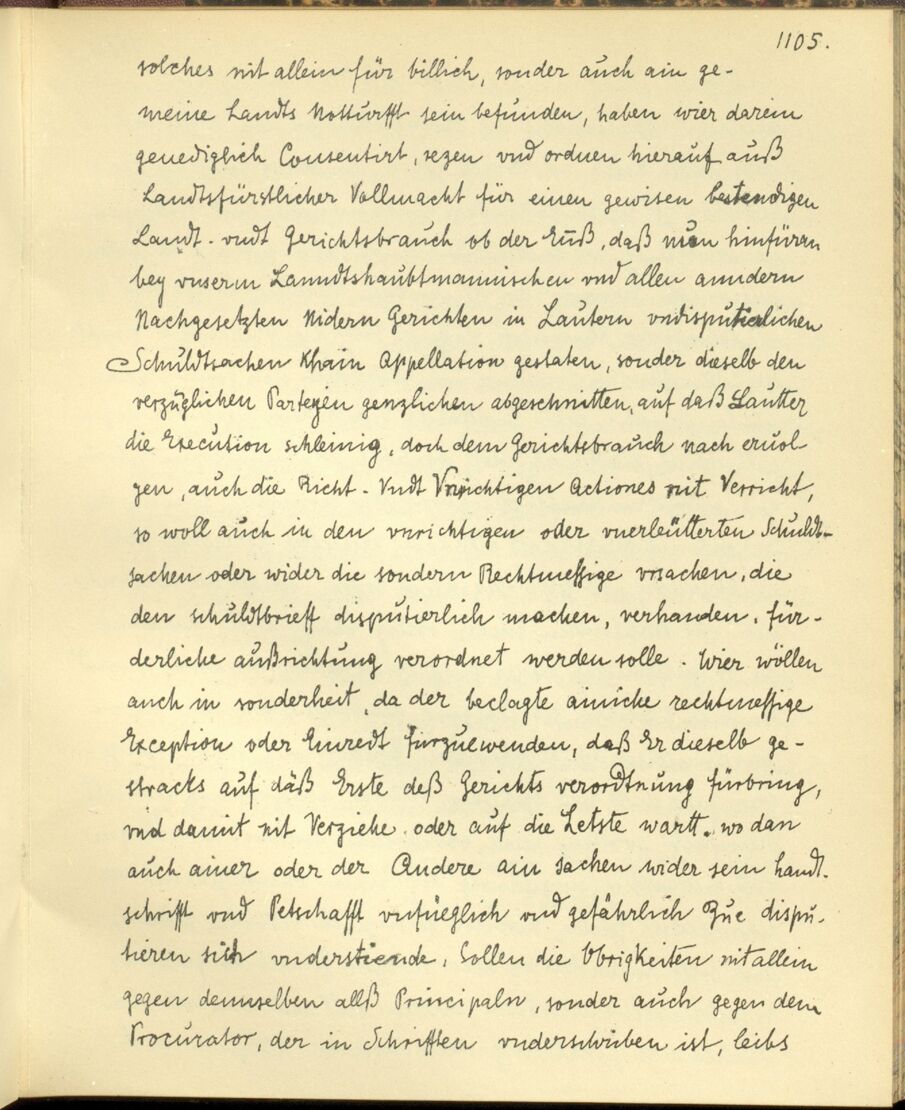 1105.
solches nit allein für billich, sonder auch ain ge-
meine Landts Notturfft sein befunden, haben wier darein
genediglich Consentirt, sezen vnd ordnen hierauf auß
Landtsfürstlicher Vollmacht für einen gewisen bestendigen
Landt- vndt Gerichtsbrauch ob der Enß, daß nun hinfüran
bey vnserm Lanndtshaubtmannischen vnd allen anndern
Nachgesetzten Nidern Gerichten in Lautern vndisputierlichen
Schuldtsachen Khain Appellation gestaten, sonder dieselb den
verzüglichen Parteyen genzlichen abgeschnitten, auf daß Lautter
die Execution schleinig, doch dem Gerichtsbrauch nach eruol
gen, auch die Richt- Vndt Vnrichtigen Actiones nit Verricht,
so woll auch in den vnrichtigen oder vnerleütterten Schuldt-
sachen oder wider die sondern Rechtmeßige vrsachen, die
den schuldtbrieff disputierlich machen, verhanden, für-
derliche außrichtung verordnet werden solle. Wier wöllen
auch in sonderheit, da der beclagte ainiche rechtmeßige
Exception oder Einredt fürzuewenden, daß Er dieselb ge-
stracks auf däß Erste deß Gerichts verordtnung fürbring,
vnd damit nit Verziehe oder auf die Letste wartt. wo dan
auch ainer oder der Andere ain sachen wider sein handt-
schrifft vnd Petschafft vnfüeglich vnd gefährlich Zue dispu-
tieren sich vnderstiende, Sollen die Obrigkeiten nit allein
gegen demselben allß Principaln, sonder auch gegen dem
Procurator, der in Schrifften vnderschriben ist, leibs